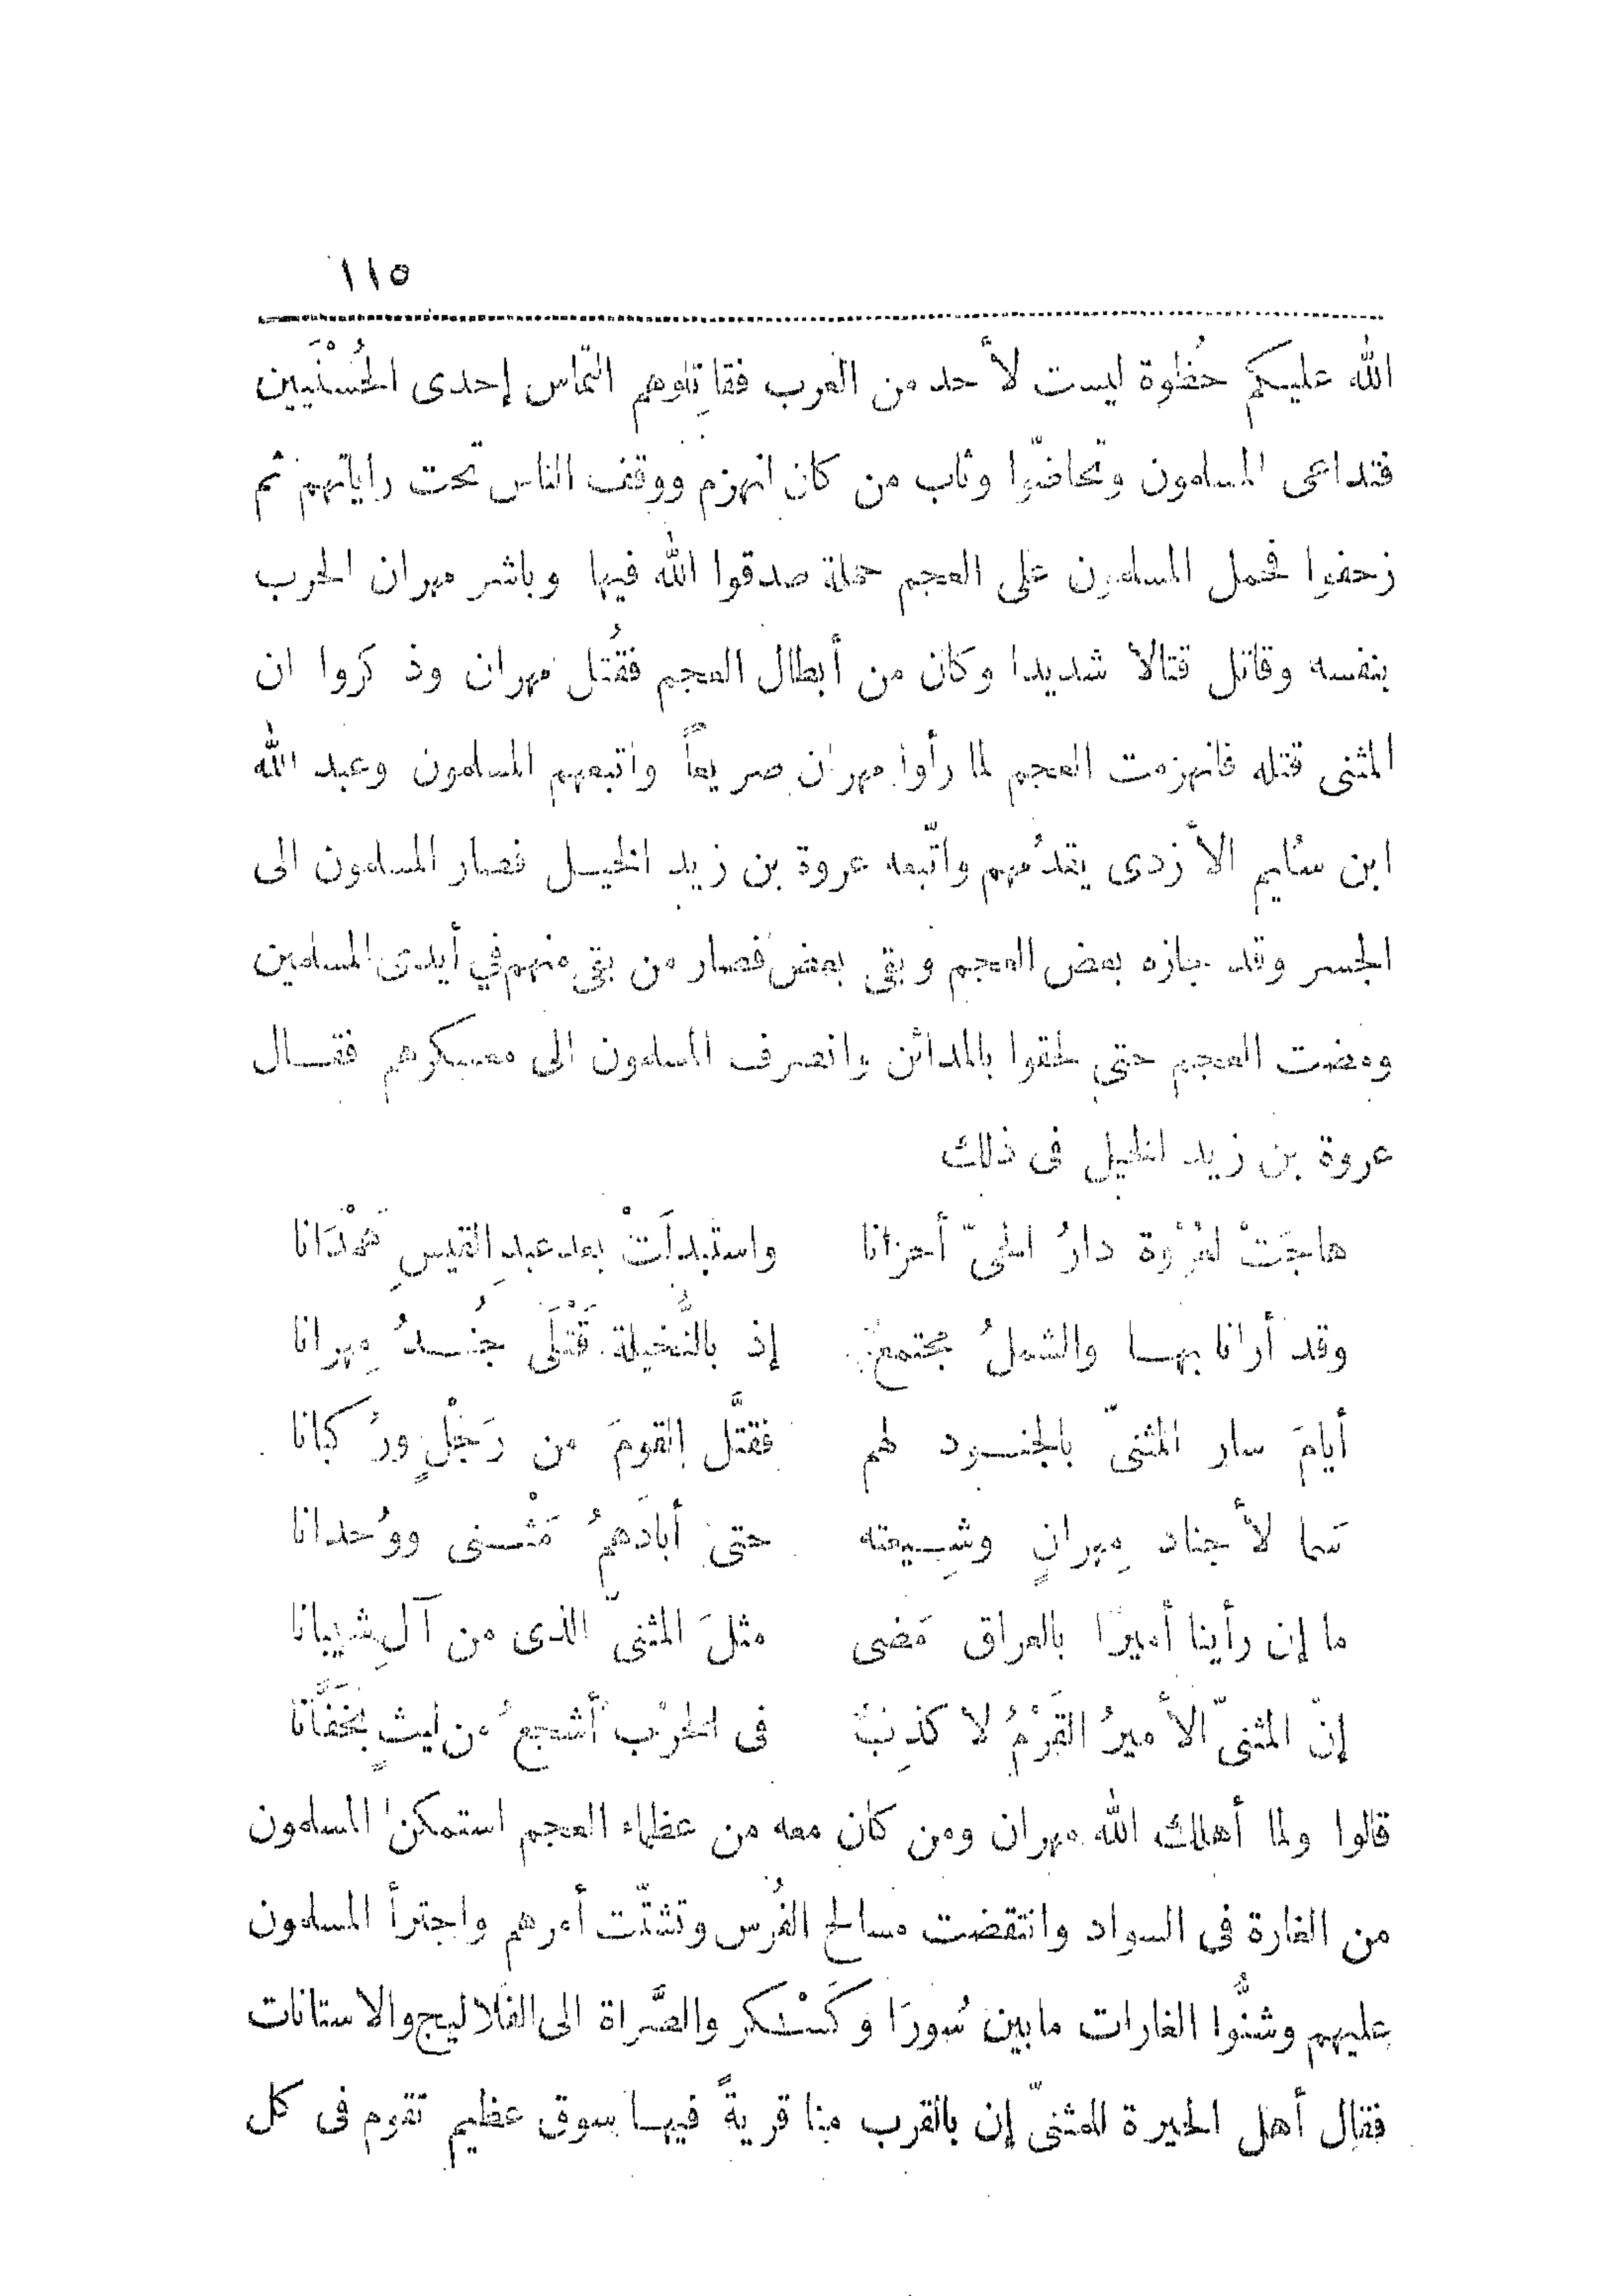 ١١٥
الله عليكم حُظوة ليست لأحد من العرب فقاتِلوهم التماس إحدى الحُسْنَيين
فتداعى المسلمون وتحاضّوا وثاب من كان انهزم ووقف الناس تحت راياتهم ثم
زحفوا فحمل المسلمون على العجم حملة صدقوا الله فيها وباشر مهران الحرب
بنفسه وقاتل قتالا شديدا وكان من أبطال العجم فقُتل مهران وذكروا ان
المثنى قتله فانهزمت العجم لما رأوا مهران صريعاً واتبعهم المسلمون وعبد الله
ابن سُليم الأزدى يقدُمهم واتّبعه عروة بن زيد الخيل فصار المسلمون الى
الجسر وقد جازه بعض العجم وبقى بعض فصار من بقى منهم في أيدى المسلمين
ومضت العجم حتى لحقوا بالمدائن وانصرف المسلمون الى معسكرهم فقال
عروة بن زيد الخيل فى ذلك
هاجَتْ لعُرْوة دارُ الحىّ أحزانا واستبدلَتْ بعد عبدِ القيسِ هَمْدَانا
وقد أرانا بها والشملُ مجتمعٌ إذ بالنُّخيلة قَتْلَى جُندُ مِهرانا
أيامَ سار المثنىّ بالجنود لهم فقتَّل القومَ من رَجْلٍ ورُكبانا
سَما لأجناد مِهرانٍ وشِيعته حتى أبادَهمُ مَثْنى ووُحدانا
ما إن رأينا أميرًا بالعراق مَضى مثلَ المثنىّ الذى من آلِ شيبانا
إنّ المثنىّ الأميرُ القَرْمُ لا كذِبٌ فى الحرْب أشجعُ من ليثٍ بخَفَّانَا
قالوا ولما أهلك الله مهران ومن كان معه من عظماء العجم استمكن المسلمون
من الغارة فى السواد وانتقضت مسالح الفُرس وتشتّت أمرهم واجترأ المسلمون
عليهم وشنُّوا الغارات ما بين سُورَا وكَسْكر والصَّراة الى الفلاليج والاستانات
فقال أهل الحيرة للمثنىّ إن بالقرب منا قريةً فيها سوق عظيم تقوم فى كل